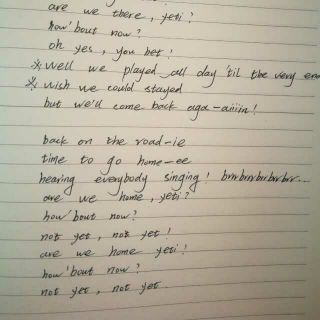 are we there, yeti?
how'bout now?
oh yes, you bet!
※ well we played all day 'til the very en
※ wish we could stayed
but we'll come back aga-aiiin!
back on the road-ie
time to go home-ee
hearing everybody singing! brrbrrbrrbrrbrr...
are we home, yeti?
how'bout now?
not yet, not yet!
are we home yeti!
how'bout now?
not yet, not yet